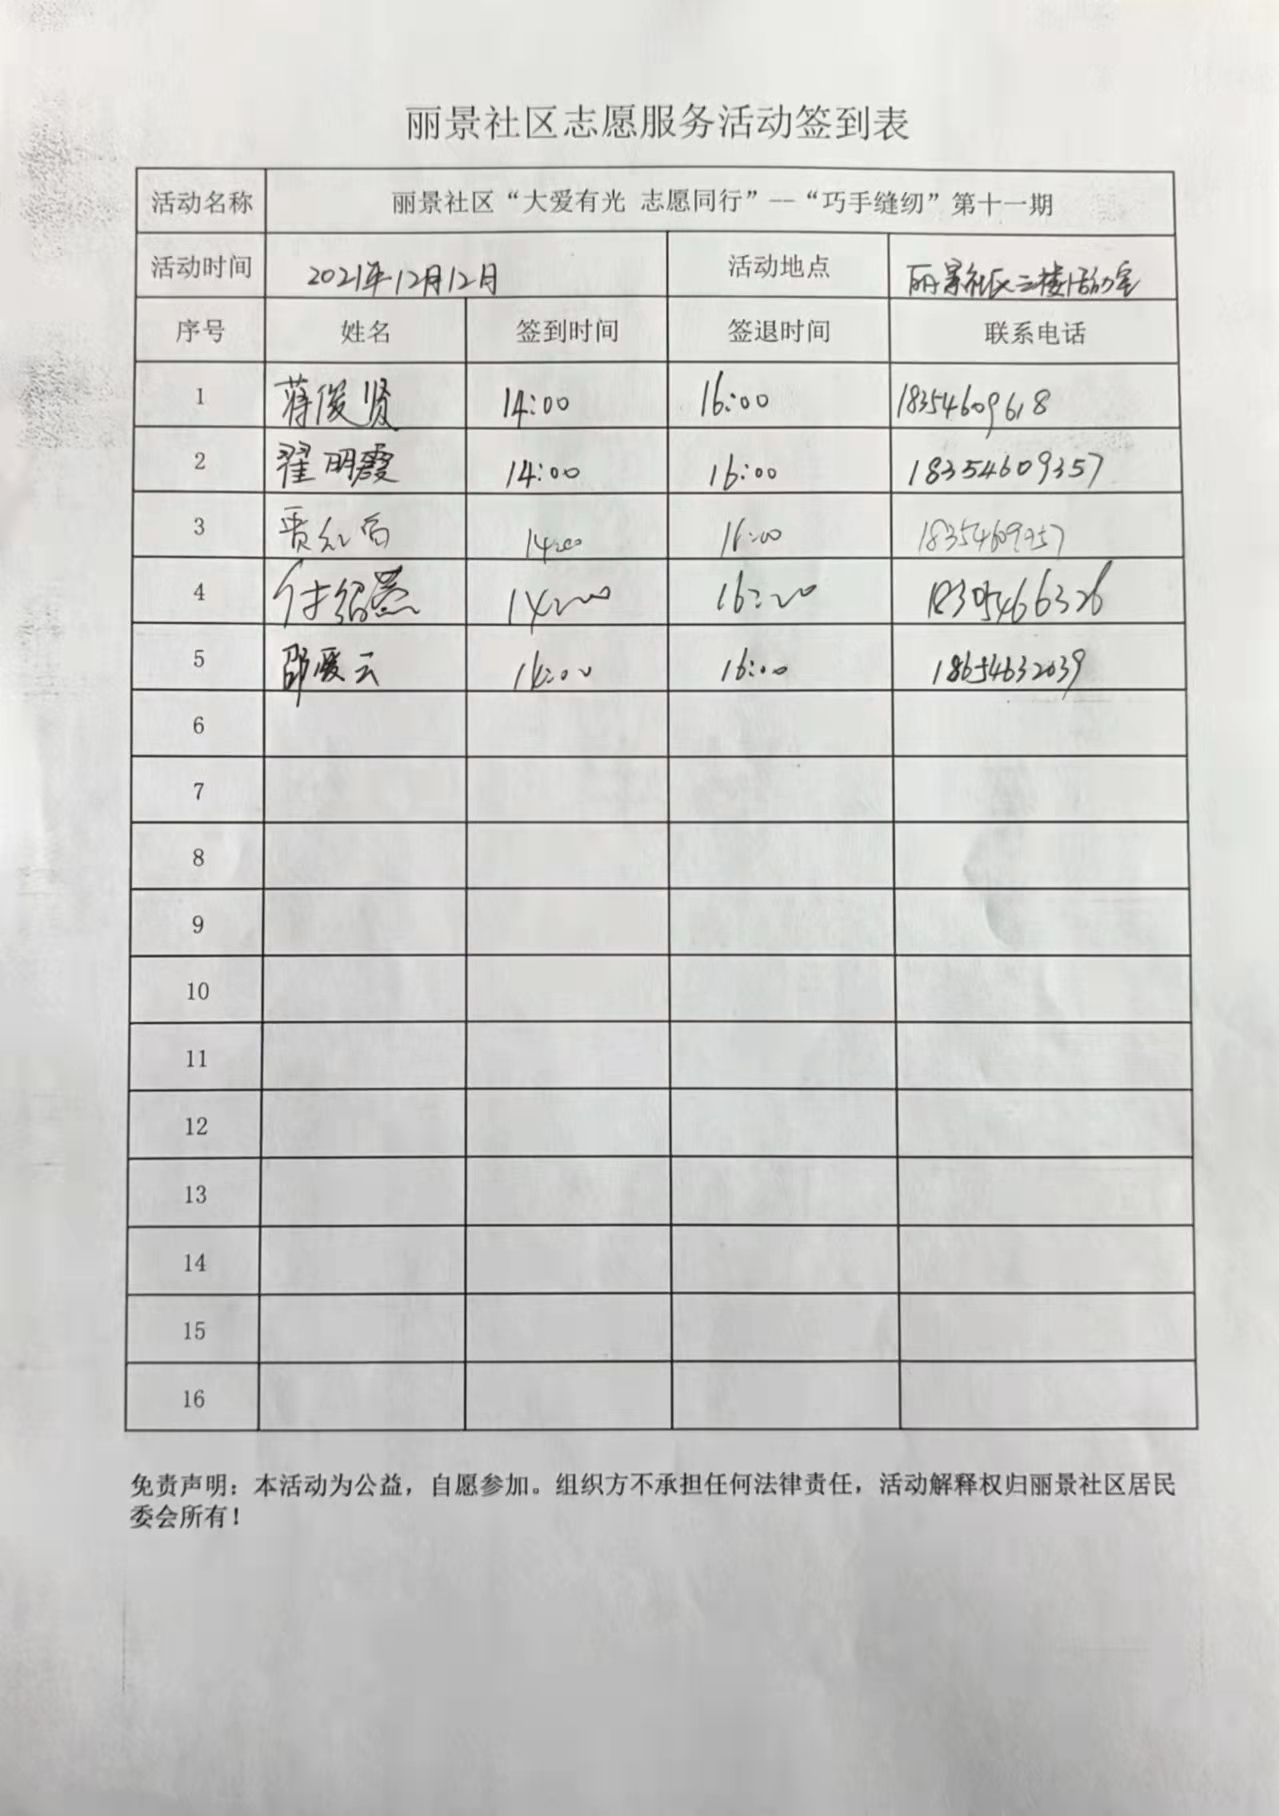 丽景社区志愿服务活动签到表
活动名称 丽景社区“大爱有光 志愿同行”--“巧手缝纫”第十一期
活动时间 2021年12月12日 活动地点 丽景社区二楼活动室
序号 姓名 签到时间 签退时间 联系电话
1 蒋俊贤 14:00 16:00 18354609618
2 翟明霞 14:00 16:00 18354609357
3 14:00 16:00
4 付绍燕 14:00 16:00 18305466326
5 邵爱云 14:00 16:00 18654632039
6
7
8
9
10
11
12
13
14
15
16
免责声明：本活动为公益，自愿参加。组织方不承担任何法律责任，活动解释权归丽景社区居民
委会所有！